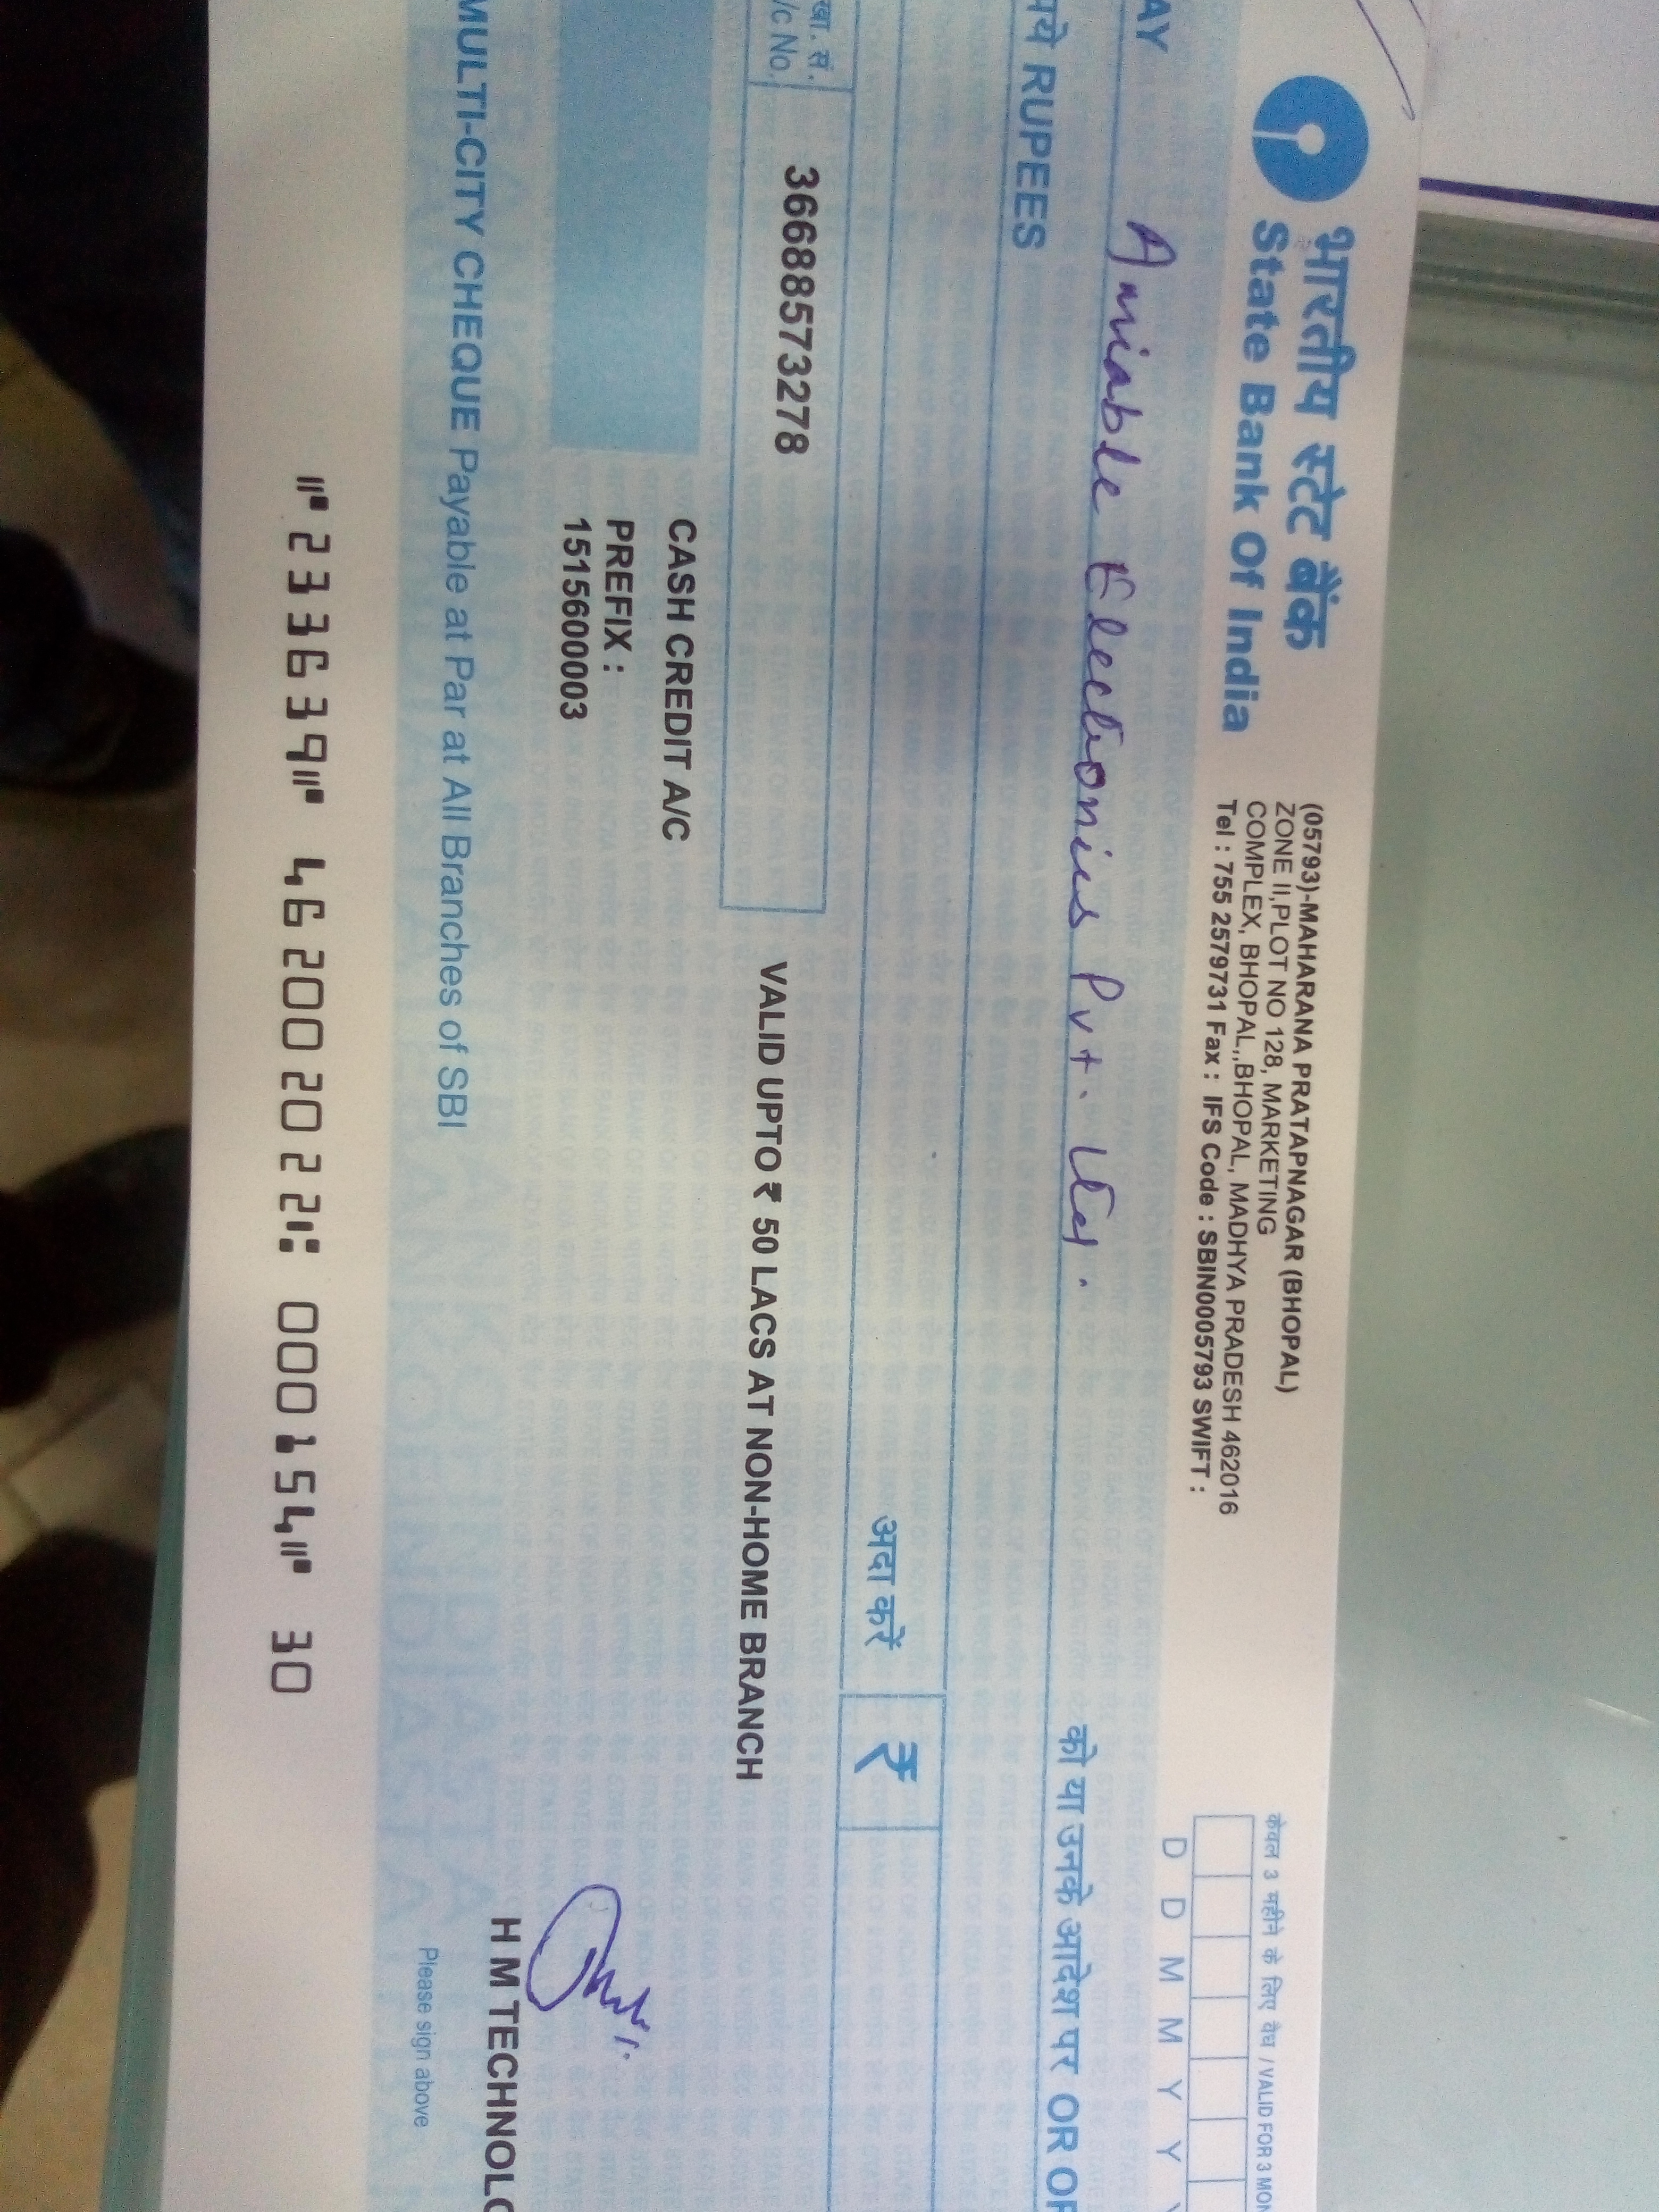 भारतीय स्टेट बैंक
State Bank Of India
(05793)-MAHARANA PRATAPNAGAR (BHOPAL)
ZONE II,PLOT NO 128, MARKETING
COMPLEX, BHOPAL,,BHOPAL, MADHYA PRADESH 462016
Tel : 755 2579731 Fax : IFS Code : SBIN0005793 SWIFT :
केवल 3 महीने के लिए वैध / VALID FOR 3 MON
D D M M Y Y
AY Amiable Electionics Pvt. Ltd.
को या उनके आदेश पर OR OR
पये RUPEES
अदा करें ₹
खा. सं.
/c No. 36688573278
VALID UPTO ₹ 50 LACS AT NON-HOME BRANCH
CASH CREDIT A/C
PREFIX :
1515600003
H M TECHNOLO
MULTI-CITY CHEQUE Payable at Par at All Branches of SBI
Please sign above
⑈233639⑈ 462002022⑆ 000154⑈ 30